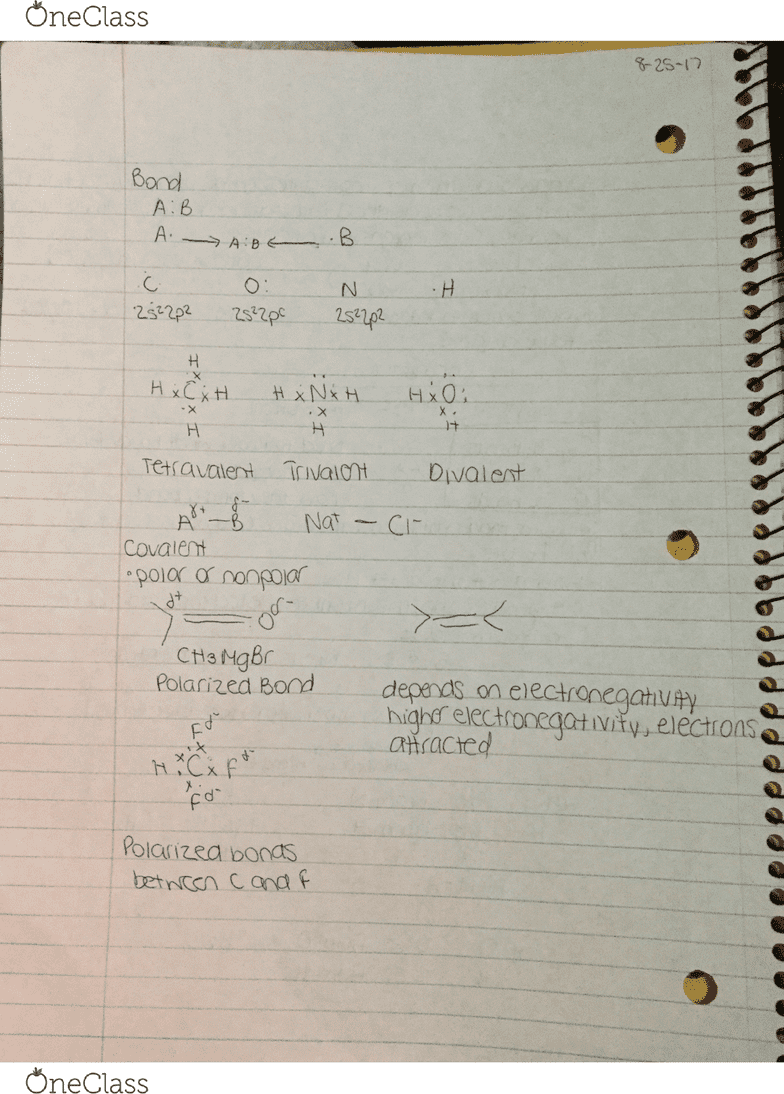 OneClass
8-25-17
Bond
A:B
A· → A:B ← ·B
·C· O: N ·H
2s²2p² 2s²2p⁶ 2s²2p²
H H H
H ×C× H H ×N× H H ×O:
H H H
Tetravalent Trivalent Divalent
A^δ+ — B^δ- Na⁺ — Cl⁻
Covalent
• polar or nonpolar
δ+ O δ-
CH3MgBr
Polarized Bond depends on electronegativity
higher electronegativity, electrons
attracted
F δ-
H ×C× F δ-
F δ-
Polarized bonds
between C and F
OneClass